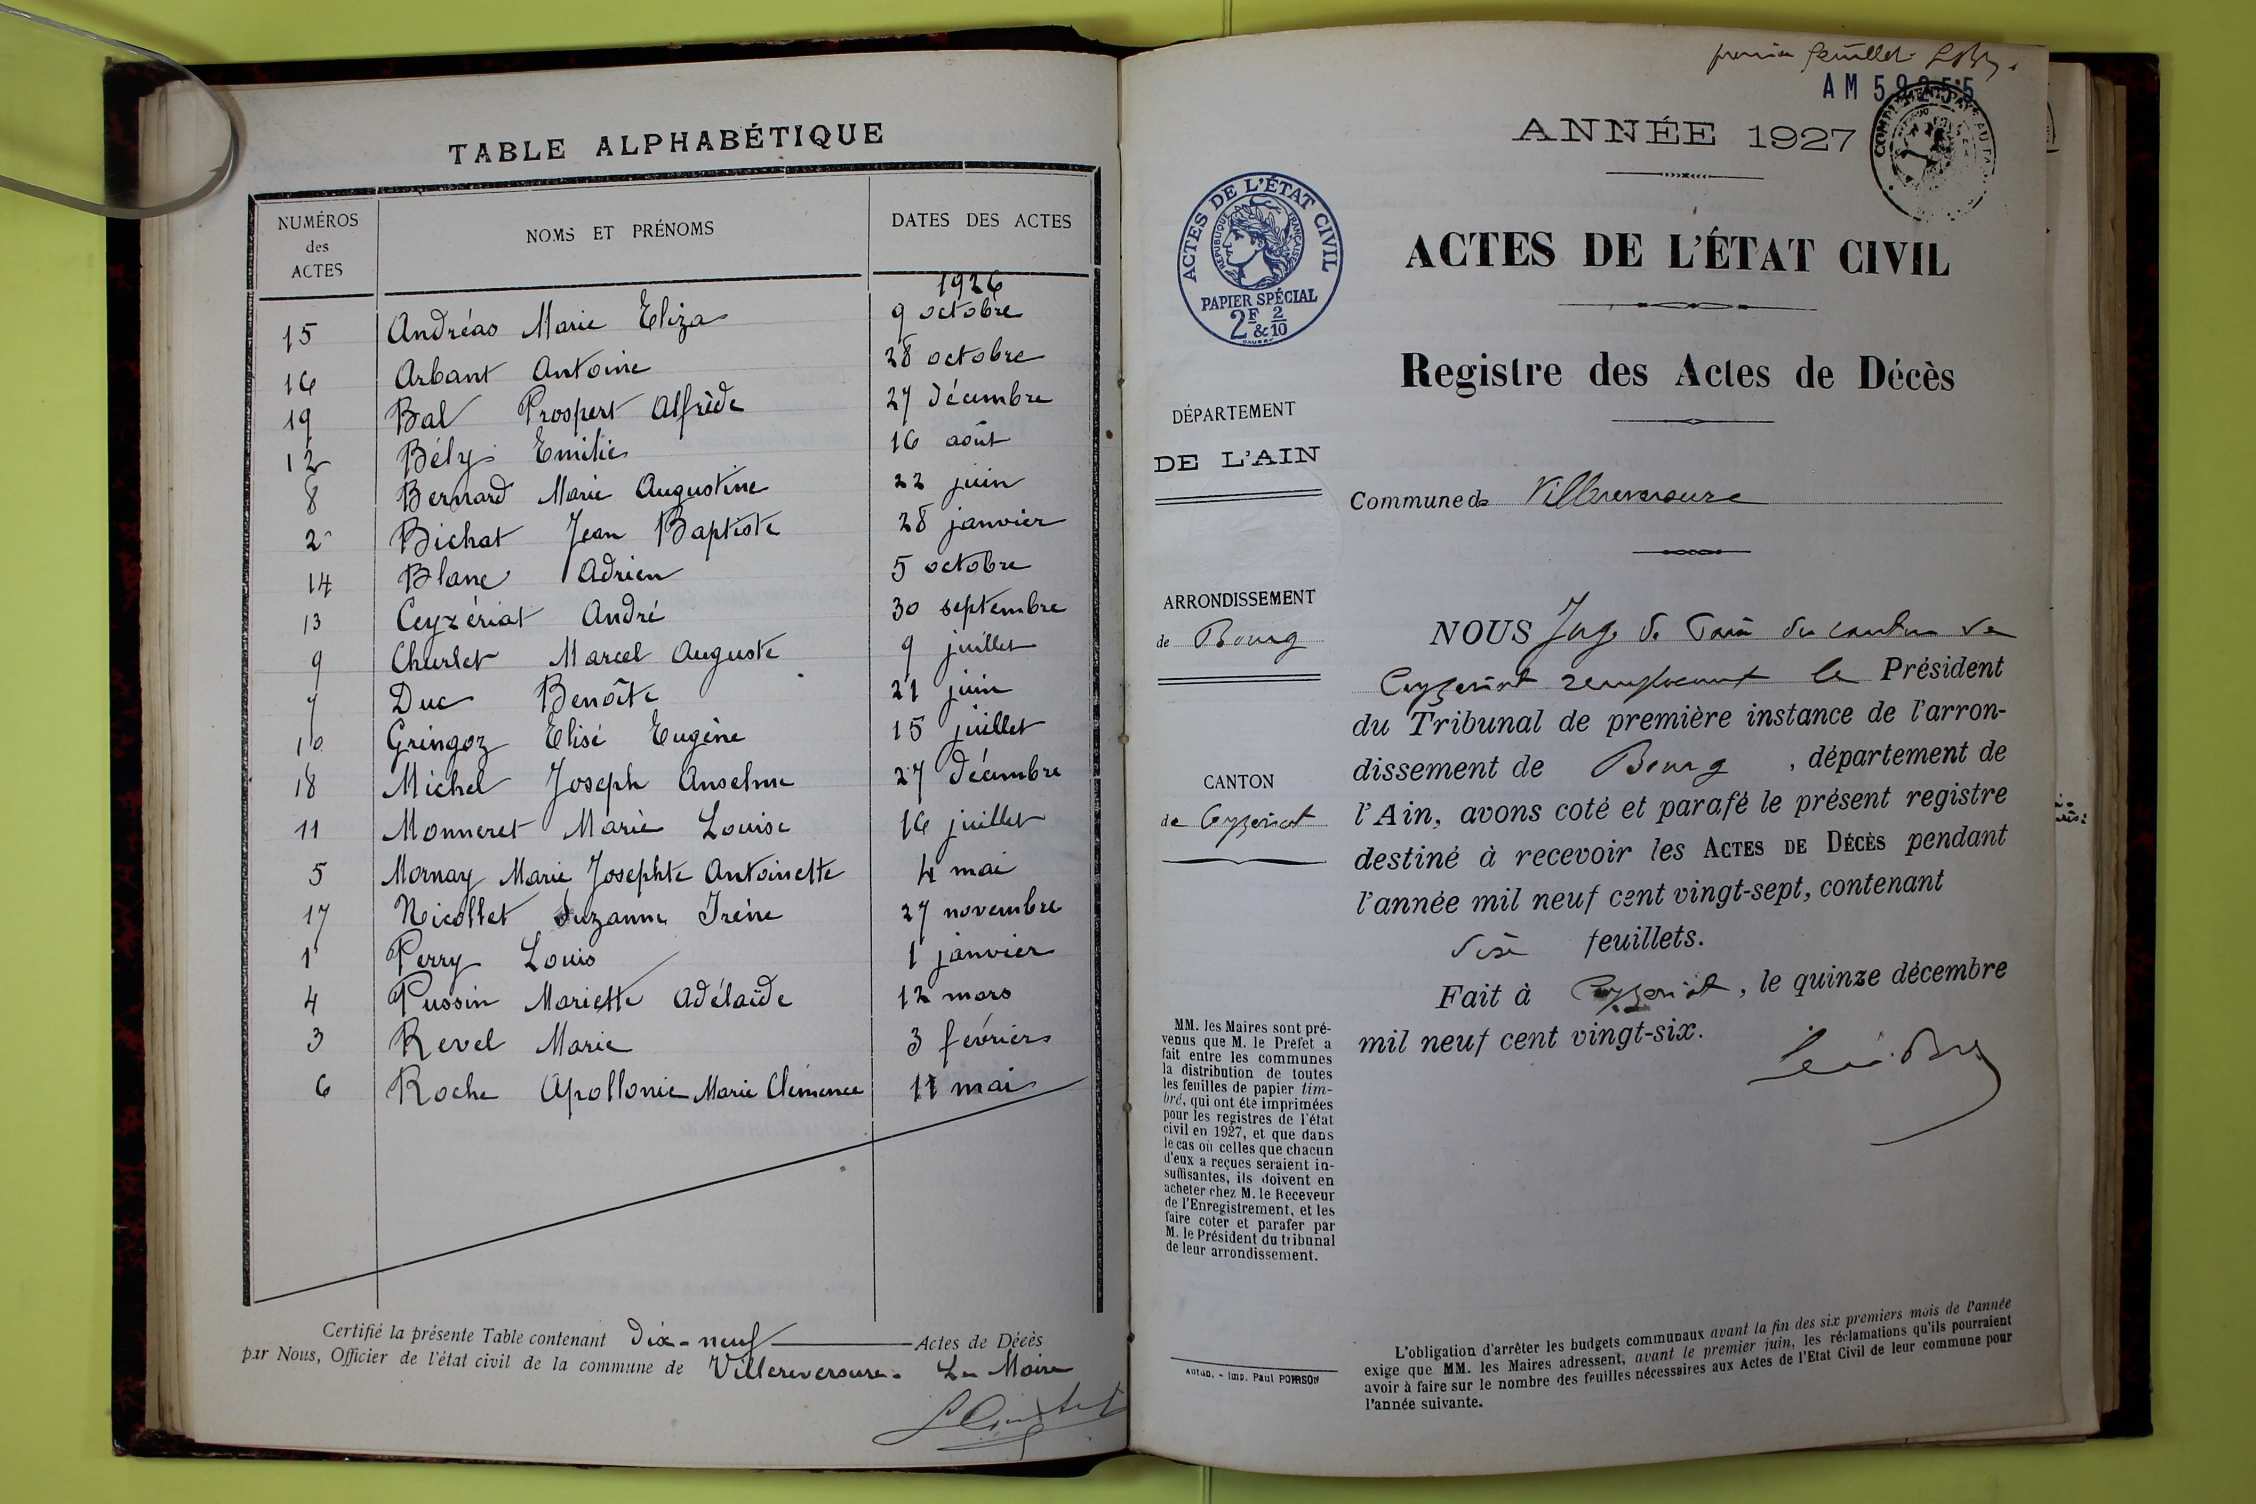 TABLE ALPHABÉTIQUE
NUMÉROS des ACTES NOMS ET PRÉNOMS DATES DES ACTES
1926
15 Andréas Marie Eliza 9 octobre
16 Arbant Antoine 28 octobre
19 Bal Prospert Alfrède 27 décembre
12 Bély Emilie 16 août
8 Bernard Marie Augustine 22 juin
2 Bichat Jean Baptiste 28 janvier
14 Blanc Adrien 5 octobre
13 Ceyzériat André 30 septembre
9 Churlet Marcel Auguste 9 juillet
7 Duc Benoîte 21 juin
10 Gringoz Elisé Eugène 15 juillet
18 Michel Joseph Anselme 27 décembre
11 Monneret Marie Louise 16 juillet
5 Mornay Marie Josephte Antoinette 4 mai
17 Nicollet Suzanne Irène 27 novembre
1 Perry Louis 1 janvier
4 Pussin Mariette Adélaïde 12 mars
3 Revel Marie 3 février
6 Roche Apollonie Marie Clémence 11 mai
Certifié la présente Table contenant Dix-neuf Actes de Décès
par Nous, Officier de l'état civil de la commune de Villereversure. Le Maire
premier feuillet
AM 59255
ANNÉE 1927
ACTES DE L'ÉTAT CIVIL
RÉPUBLIQUE FRANÇAISE
PAPIER SPÉCIAL
2F & 2/10
ACTES DE L'ÉTAT CIVIL
Registre des Actes de Décès
DÉPARTEMENT
DE L'AIN
Commune de Villereversure
ARRONDISSEMENT
de Bourg
CANTON
de Ceyzeriat
NOUS Juge de Paix du canton de
Ceyzeriat remplacant le Président
du Tribunal de première instance de l'arron-
dissement de Bourg, département de
l'Ain, avons coté et parafé le présent registre
destiné à recevoir les ACTES DE DÉCÈS pendant
l'année mil neuf cent vingt-sept, contenant
feuillets.
Fait à Ceyzeriat, le quinze décembre
mil neuf cent vingt-six.
MM. les Maires sont pré-
venus que M. le Préfet a
fait entre les communes
la distribution de toutes
les feuilles de papier tim-
bré, qui ont été imprimées
pour les registres de l'état
civil en 1927, et que dans
le cas où celles que chacun
d'eux a reçues seraient in-
suffisantes, ils doivent en
acheter chez M. le Receveur
de l'Enregistrement, et les
faire coter et parafer par
M. le Président du tribunal
de leur arrondissement.
Autun. - Imp. Paul POIRSON
L'obligation d'arrêter les budgets communaux avant la fin des six premiers mois de l'année
exige que MM. les Maires adressent, avant le premier juin, les réclamations qu'ils pourraient
avoir à faire sur le nombre des feuilles nécessaires aux Actes de l'Etat Civil de leur commune pour
l'année suivante.